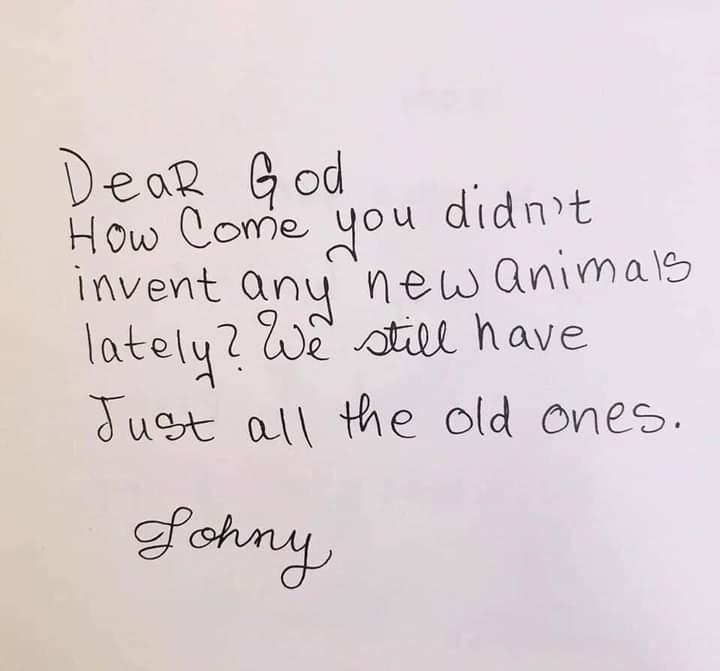 Dear God
How Come you didn't
invent any new animals
lately? We still have
Just all the old ones.
Johny